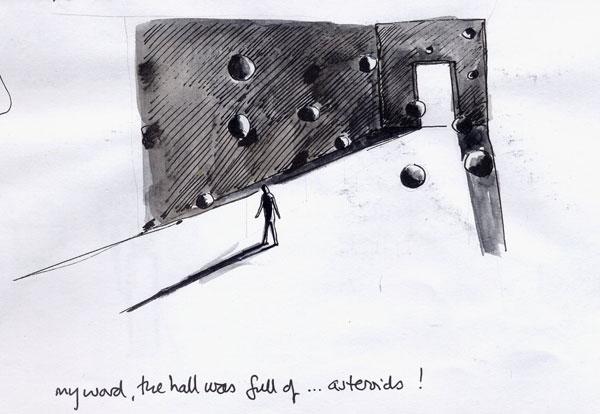 my word, the hall was full of ... asteroids !